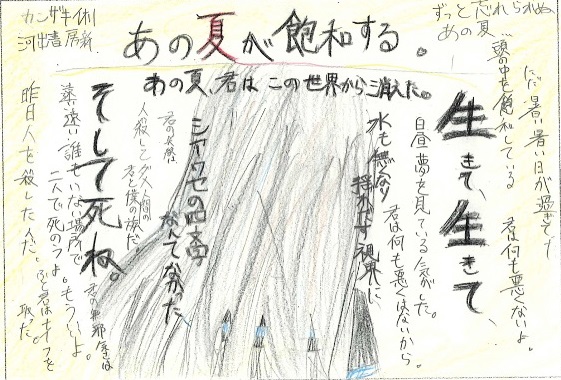 カンザキイオリ
河出書房新
あの夏が飽和する。
ずっと忘れられぬ
あの夏…
あの夏、君はこの世界から消えた。
暑い暑い日が過ぎてく
頭の中を飽和している
君は何も悪くないよ。
生きて、生きて、
白昼夢を見ている気がした。
君は何も悪くはないから。
水も無くなり
揺れだす視界に
シアワセの四文字
なんてなかった
人殺しとダメ人間の
君と僕の旅だ
そして死ね。
遠い遠い誰もいない場所で
二人で死のうよ。もういいよ。
昨日人を殺したんだ。
君はナイフを
取った。